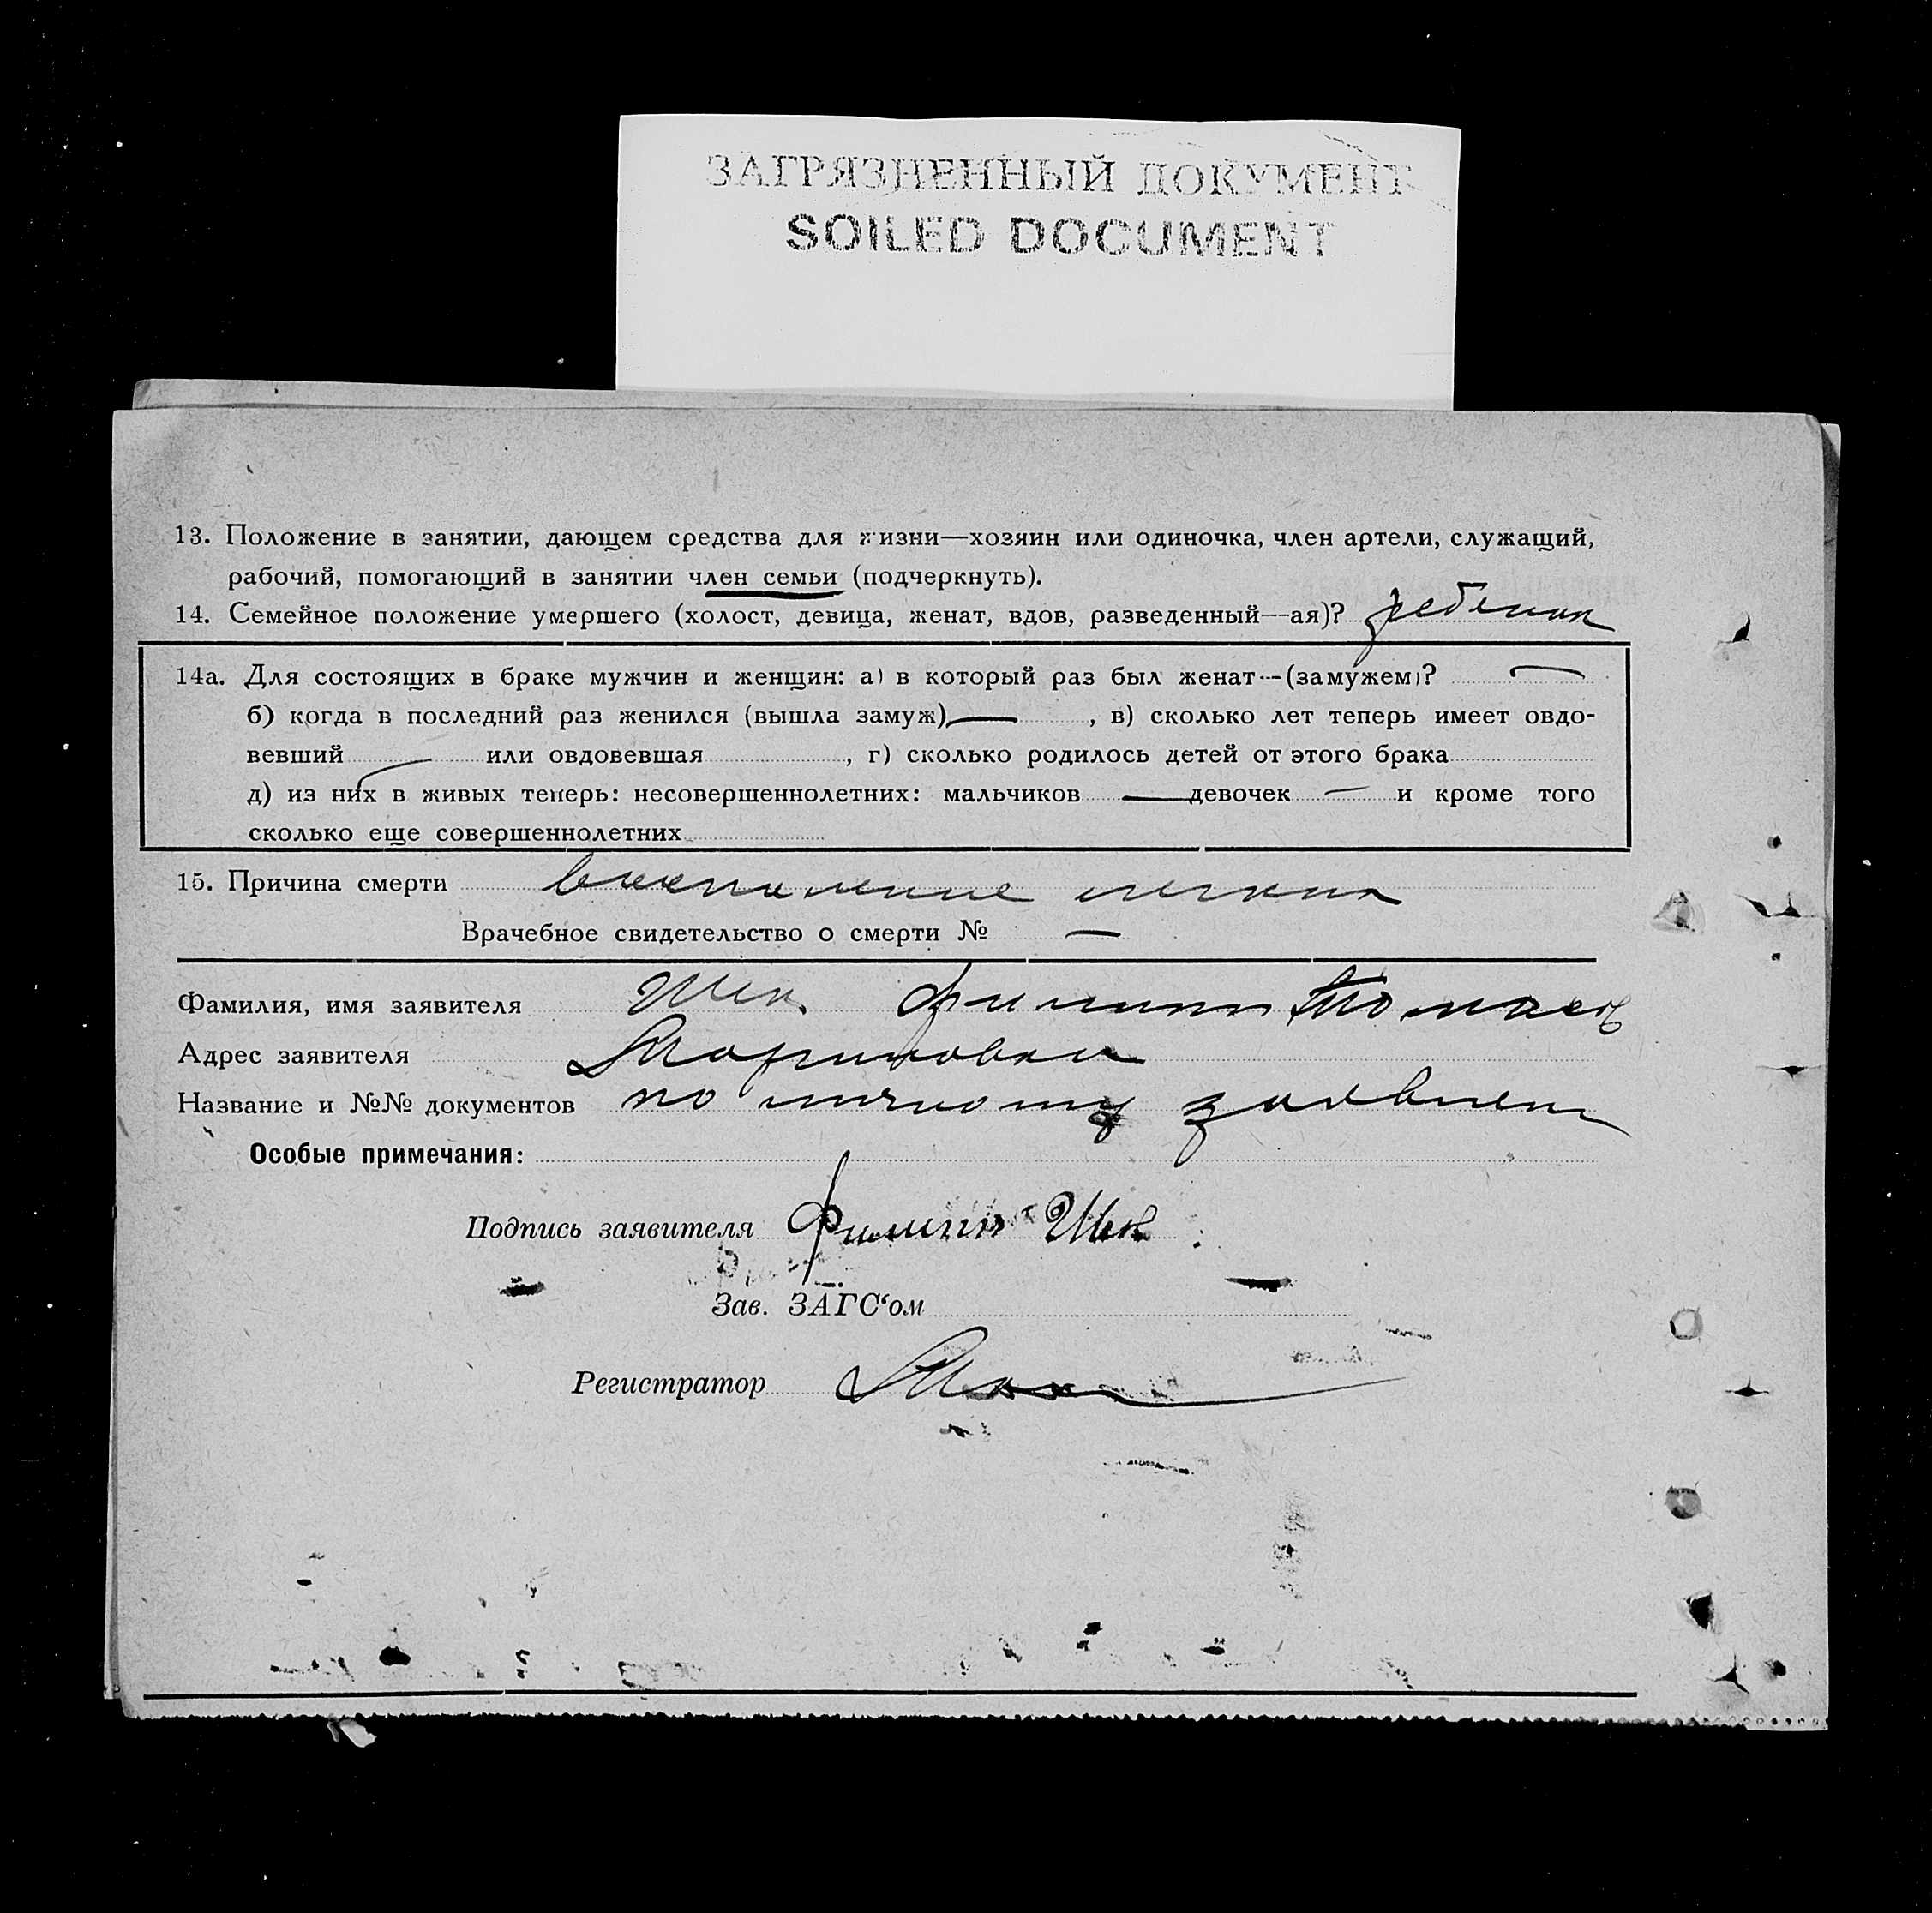 ЗАГРЯЗНЕННЫЙ ДОКУМЕНТ
SOILED DOCUMENT
13. Положение в занятии, дающем средства для жизни—хозяин или одиночка, член артели, служащий,
рабочий, помогающий в занятии член семьи (подчеркнуть).
14. Семейное положение умершего (холост, девица, женат, вдов, разведенный—ая)? ребенок
14а. Для состоящих в браке мужчин и женщин: а) в который раз был женат—(замужем)? —
б) когда в последний раз женился (вышла замуж) —, в) сколько лет теперь имеет овдо-
вевший — или овдовевшая, г) сколько родилось детей от этого брака
д) из них в живых теперь: несовершеннолетних: мальчиков — девочек — и кроме того
сколько еще совершеннолетних
15. Причина смерти воспаление легких
Врачебное свидетельство о смерти № —
Фамилия, имя заявителя Шек Филипп
Адрес заявителя
Название и №№ документов по личному заявлен
Особые примечания:
Подпись заявителя Филипп Шек
Зав. ЗАГС‘ом
Регистратор